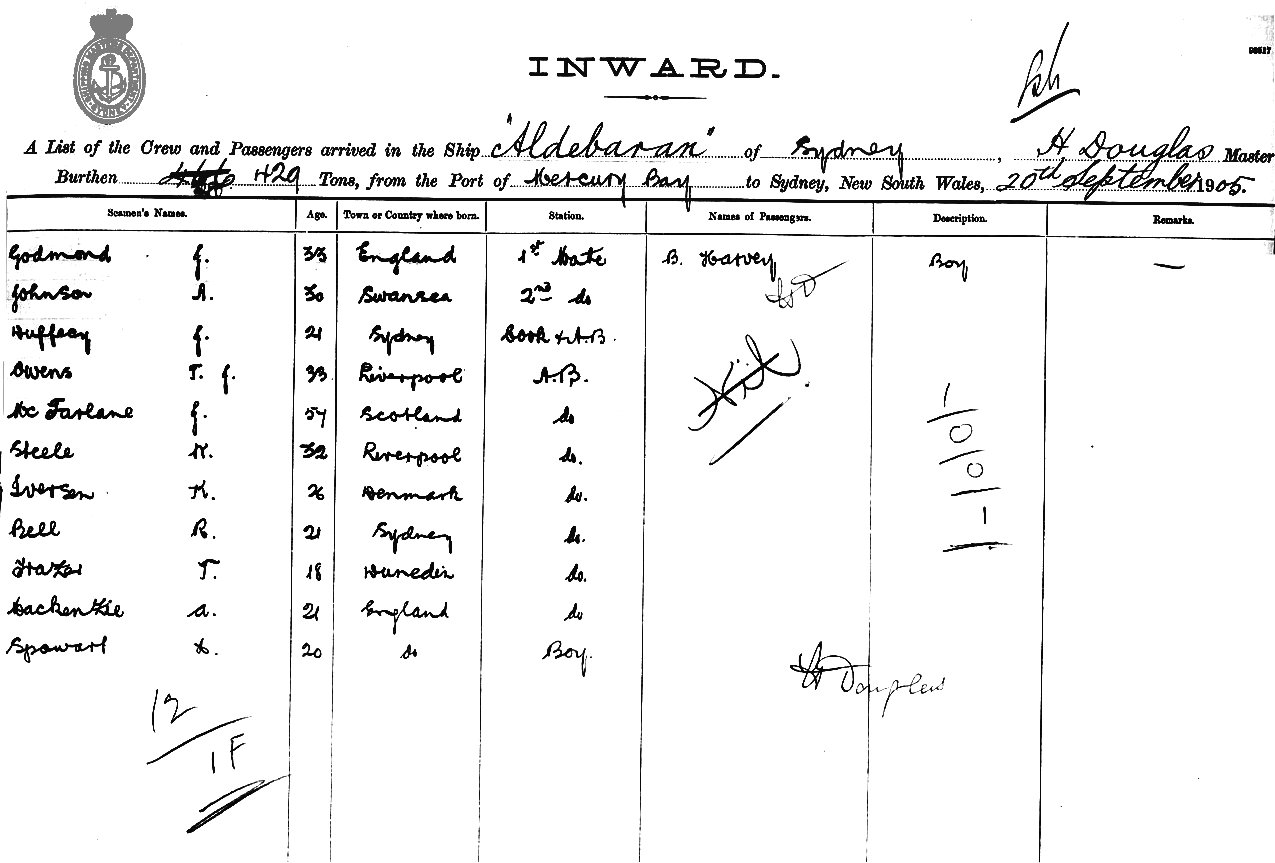 INWARD.
A List of the Crew and Passengers arrived in the Ship "Aldebaran" of Sydney, H Douglas Master
Burthen 429 Tons, from the Port of Mercury Bay to Sydney, New South Wales, 20th September 1905.
Seamen's Names. Age. Town or Country where born. Station. Names of Passengers. Description. Remarks.
Godmond J. 33 England 1st Mate B. Harvey Boy —
Johnson A. 30 Swansea 2nd do HD
Huffecy J. 21 Sydney Cook & A.B.
Owens T. J. 33 Liverpool A.B. Nil
Mc Farlane J. 57 Scotland do
Steele 32 Liverpool do.
Iversen K. 26 Denmark do.
Bell R. 21 Sydney do.
Frazer T. 18 Dunedin do.
Mackenzie A. 21 England do
Spowart 20 do Boy.
H Douglas
12
1F
1-|0|0|-